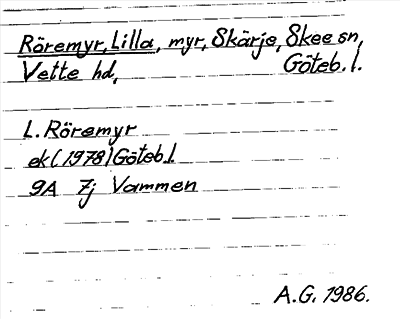 Röremyr, Lilla, myr, Skärje, Skee sn,
Vette hd, Göteb. l.
L. Röremyr
ek (1978) Göteb. l.
9A 7j Vammen
A.G. 1986.